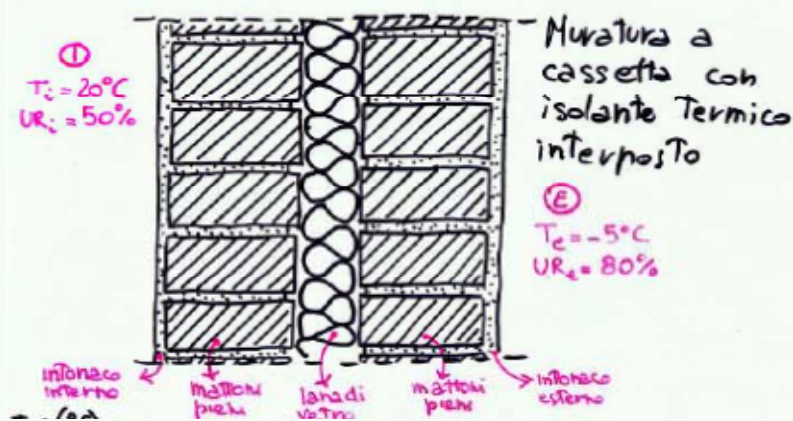 Muratura a
cassetta con
isolante Termico
interposto
I
Ti = 20°C
URi = 50%
E
Te = -5°C
URe = 80%
intonaco
interno
mattoni
pieni
lana di
vetro
mattoni
pieni
intonaco
esterno